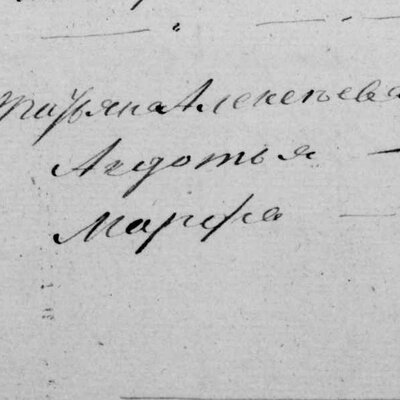 Татьяна Алексѣева
Авдотья —
Марфа —